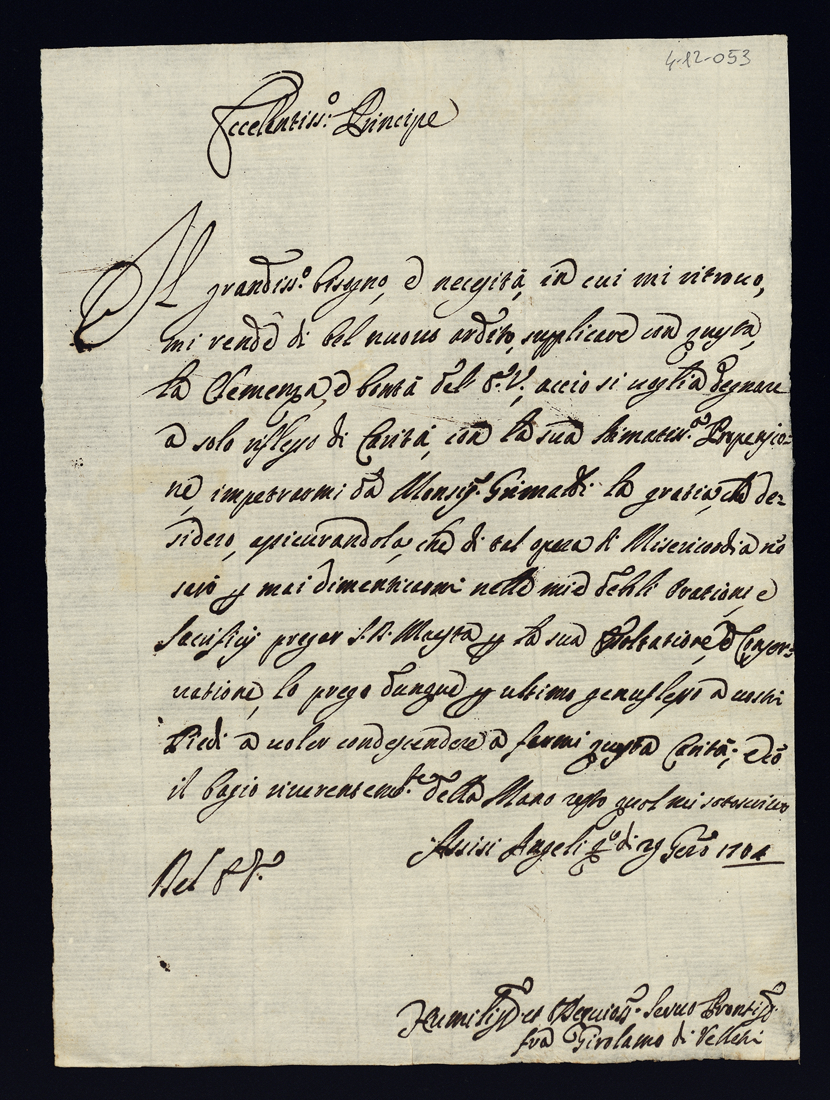 4-12-053
Eccellentiss.o Principe
Il grandiss.o bisogno, e necessità, in cui mi ritrovo,
mi rende di bel nuovo ardito, supplicare con questa,
la Clemenza, e bontà del acciò si voglia degnare
a solo riflesso di Carità, con la sua stimatiss.a Propensio-
ne, impetrarmi da Monsig.r Grimaldi la gratia, che de-
sidero, assicurandola, che di tal opera di Misericordia nõ
sarò p mai dimenticarmi nelle mie debili Orationi, e
Sacrificij pregar S.D. Maestà p la sua Esaltatione, e Conser-
vatione, lo prego dunque p ultimo genuflesso a vostri
Piedi a voler condescendere a farmi questa Carità; e cõ
il bagio riverentem.te della Mano resto qual mi sotoscrivo
Assisi Angeli di 29 Gen.o 1704
Del
Humiliss.o et Obequioss.o Servo
fra Girolamo di Velletri